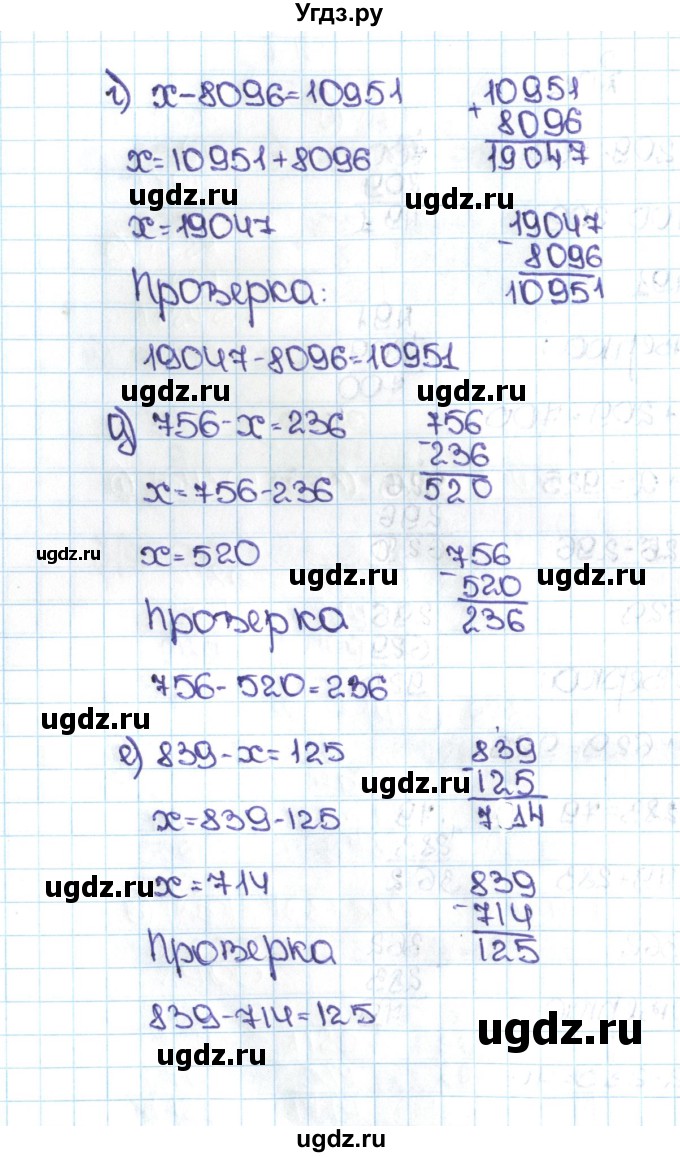 Угдз.ру
г) x-8096=10951
10951
+ 8096
19047
x=10951+8096
ugdz.ru
ugdz.ru
x=19047
19047
- 8096
10951
Проверка:
19047-8096=10951
ugdz.ru
ugdz.ru
д) 756-x=236
756
- 236
520
x=756-236
ugdz.ru
x=520
ugdz.ru
ugdz.ru
756
- 520
236
Проверка
756-520=236
ugdz.ru
е) 839-x=125
839
- 125
7.14
ugdz.ru
x=839-125
ugdz.ru
x=714
839
- 714
125
Проверка
839-714=125
ugdz.ru
ugdz.ru
ugdz.ru